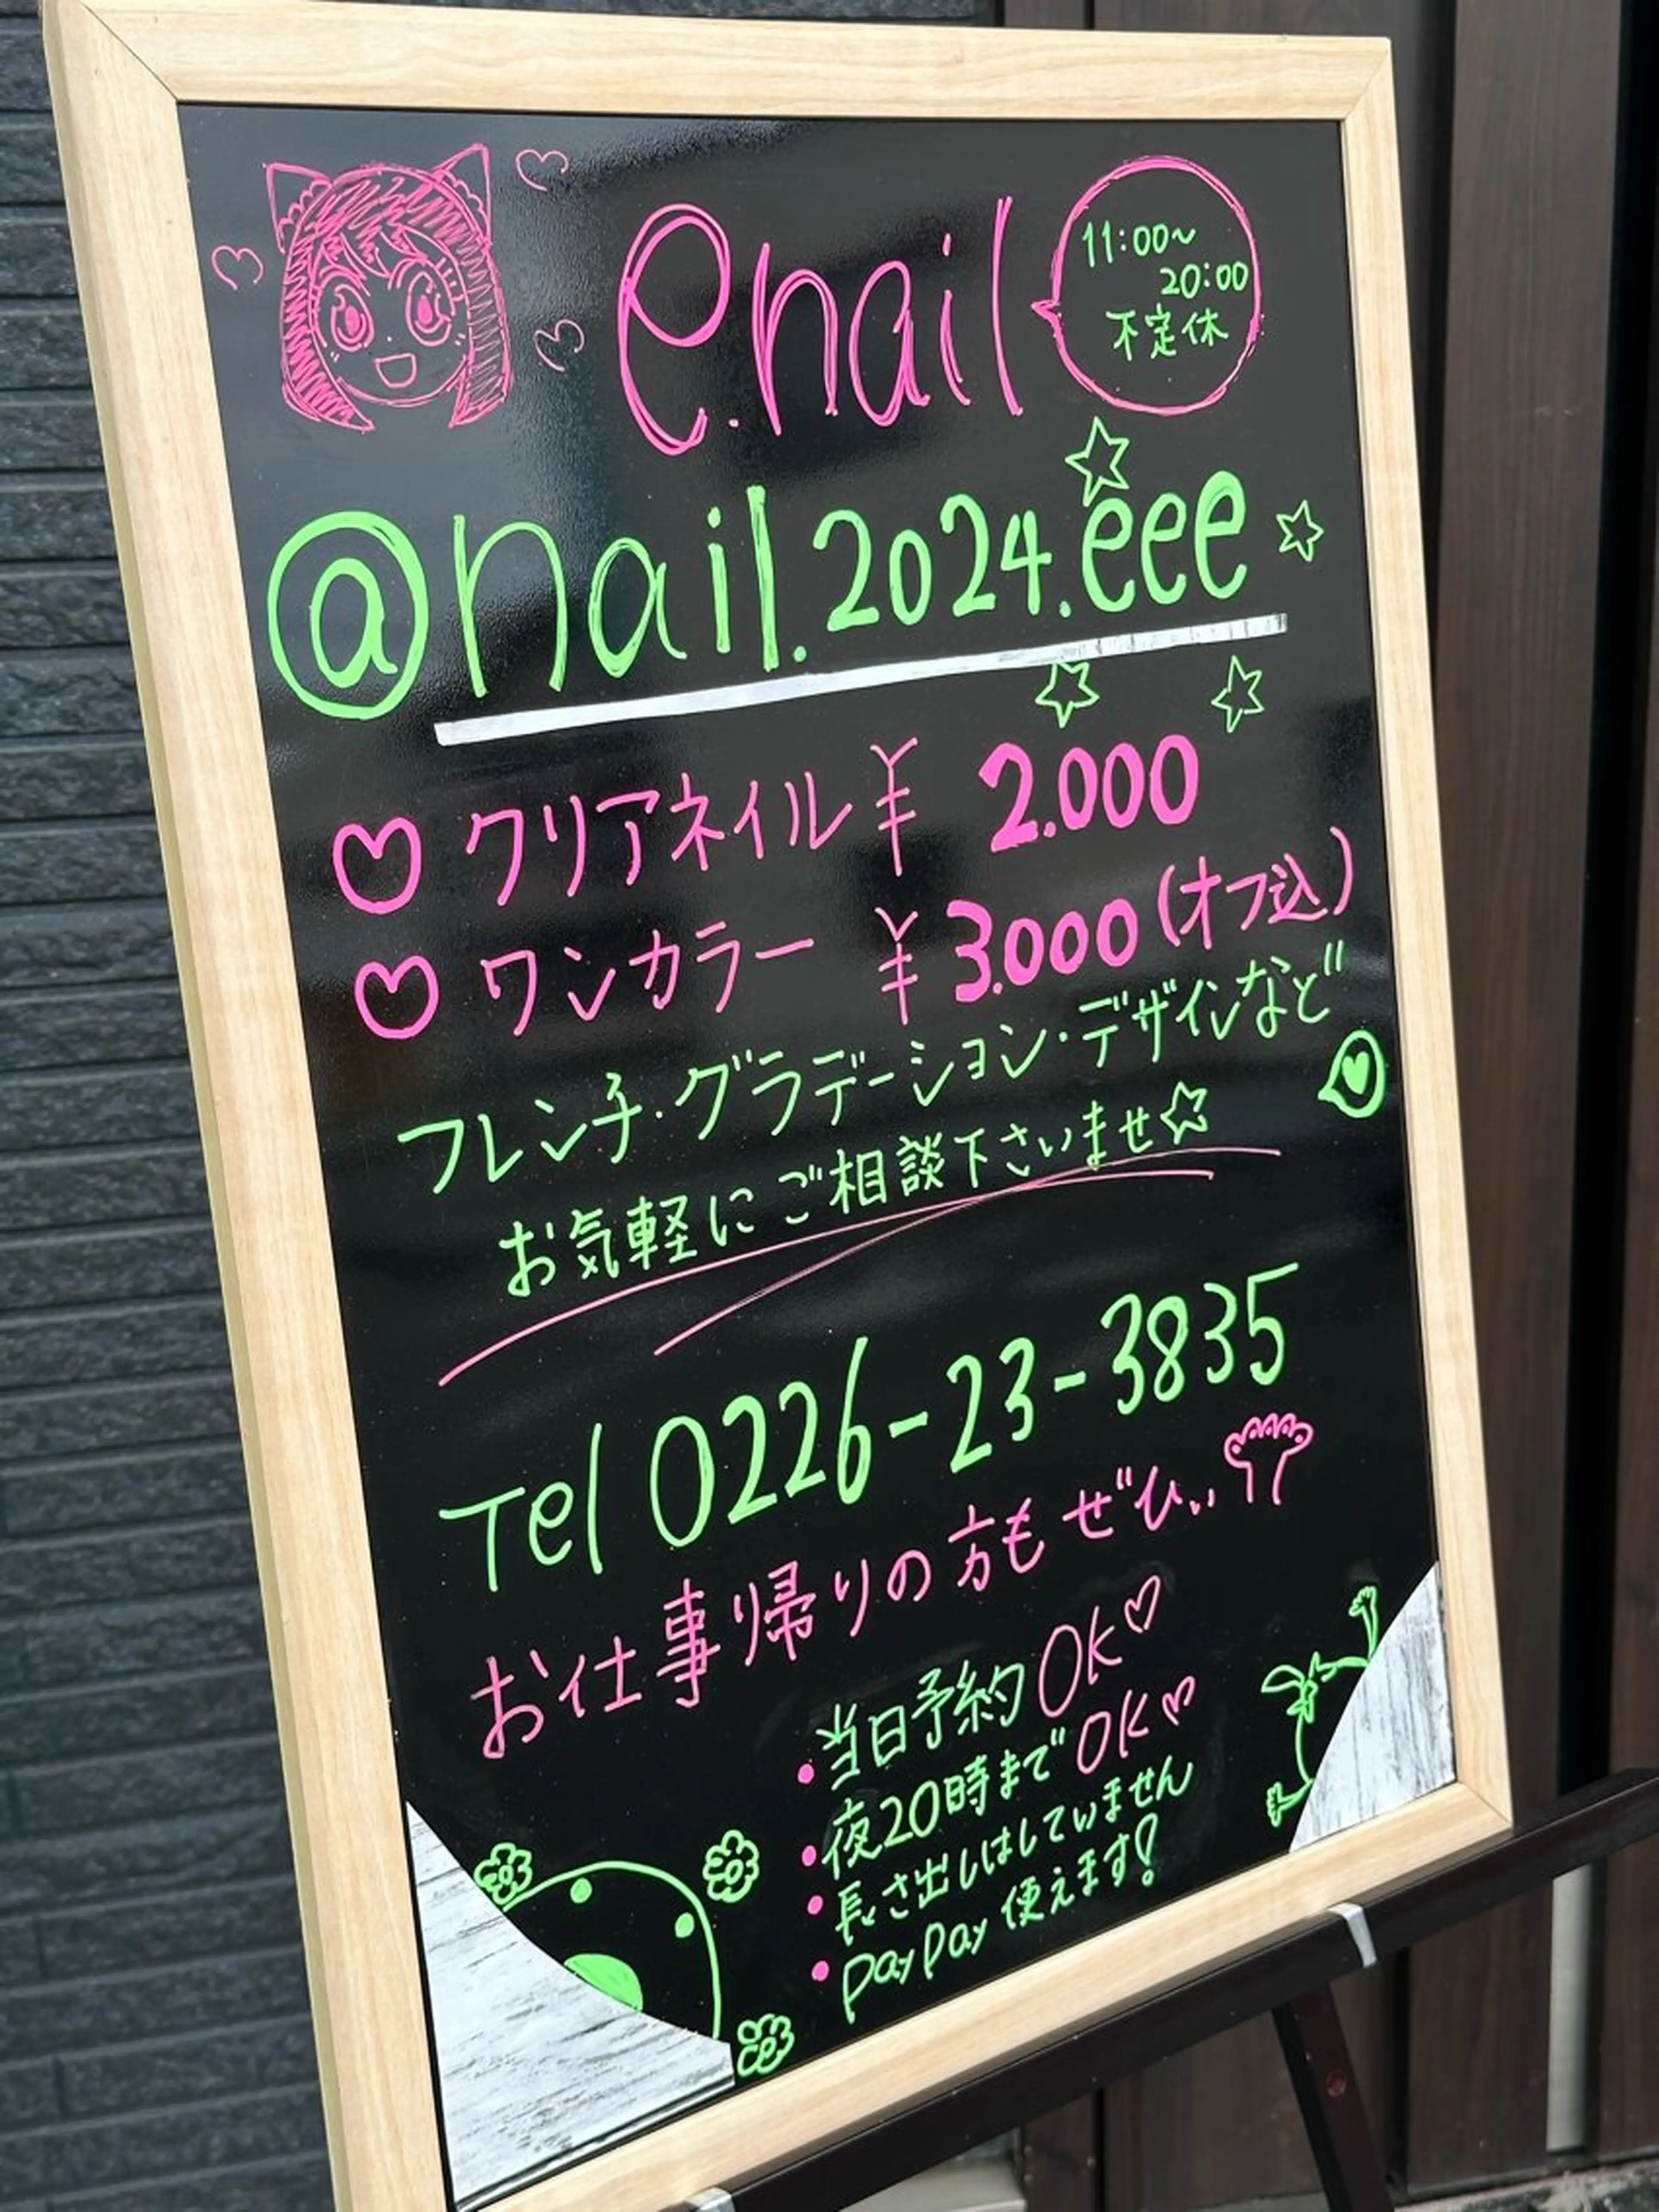 e.nail
11:00~
20:00
不定休
@nail.2024.eee
クリアネイル ¥ 2.000
ワンカラー ¥ 3.000 (オフ込)
フレンチ・グラデーション・デザインなど
お気軽にご相談下さいませ☆
Tel 0226-23-3835
お仕事帰りの方もぜひ‥
・当日予約OK♡
・夜20時までOK♡
・長さ出しはしていません
・PayPay 使えます!